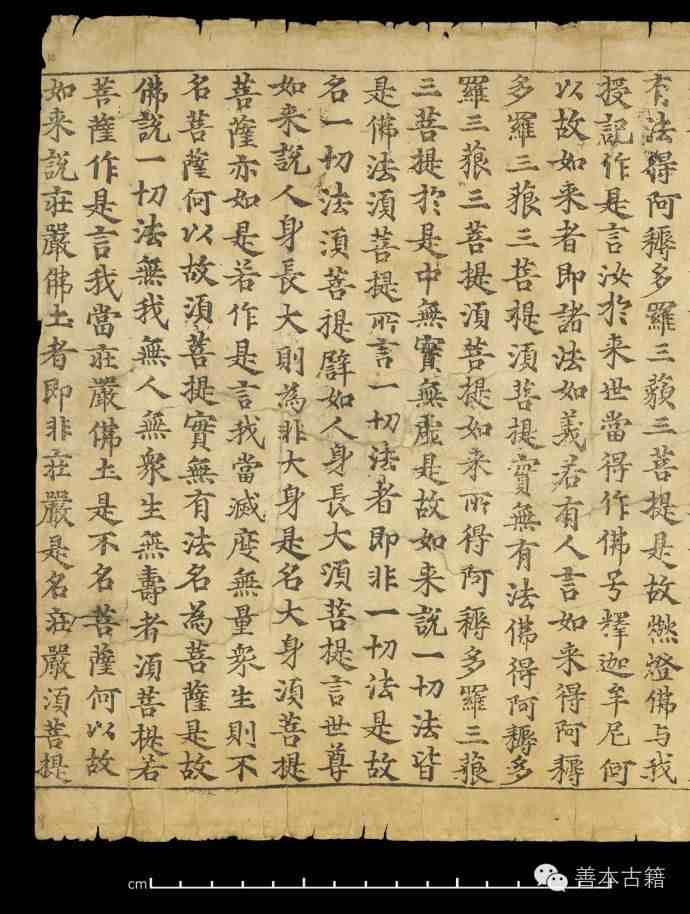 有法得阿耨多羅三藐三菩提是故燃燈佛与我
授記作是言汝於来世當得作佛号釋迦牟尼何
以故如来者即諸法如義若有人言如来得阿耨
多羅三藐三菩提湏菩提實無有法佛得阿耨多
羅三藐三菩提湏菩提如来所得阿耨多羅三藐
三菩提於是中無實無虛是故如来說一切法皆
是佛法湏菩提所言一切法者即非一切法是故
名一切法湏菩提譬如人身長大湏菩提言世尊
如来說人身長大則為非大身是名大身湏菩提
菩薩亦如是若作是言我當滅度無量衆生則不
名菩薩何以故湏菩提實無有法名為菩薩是故
佛說一切法無我無人無衆生無壽者湏菩提若
菩薩作是言我當庄嚴佛土是不名菩薩何以故
如来說庄嚴佛土者即非庄嚴是名庄嚴湏菩提
cm
善本古籍